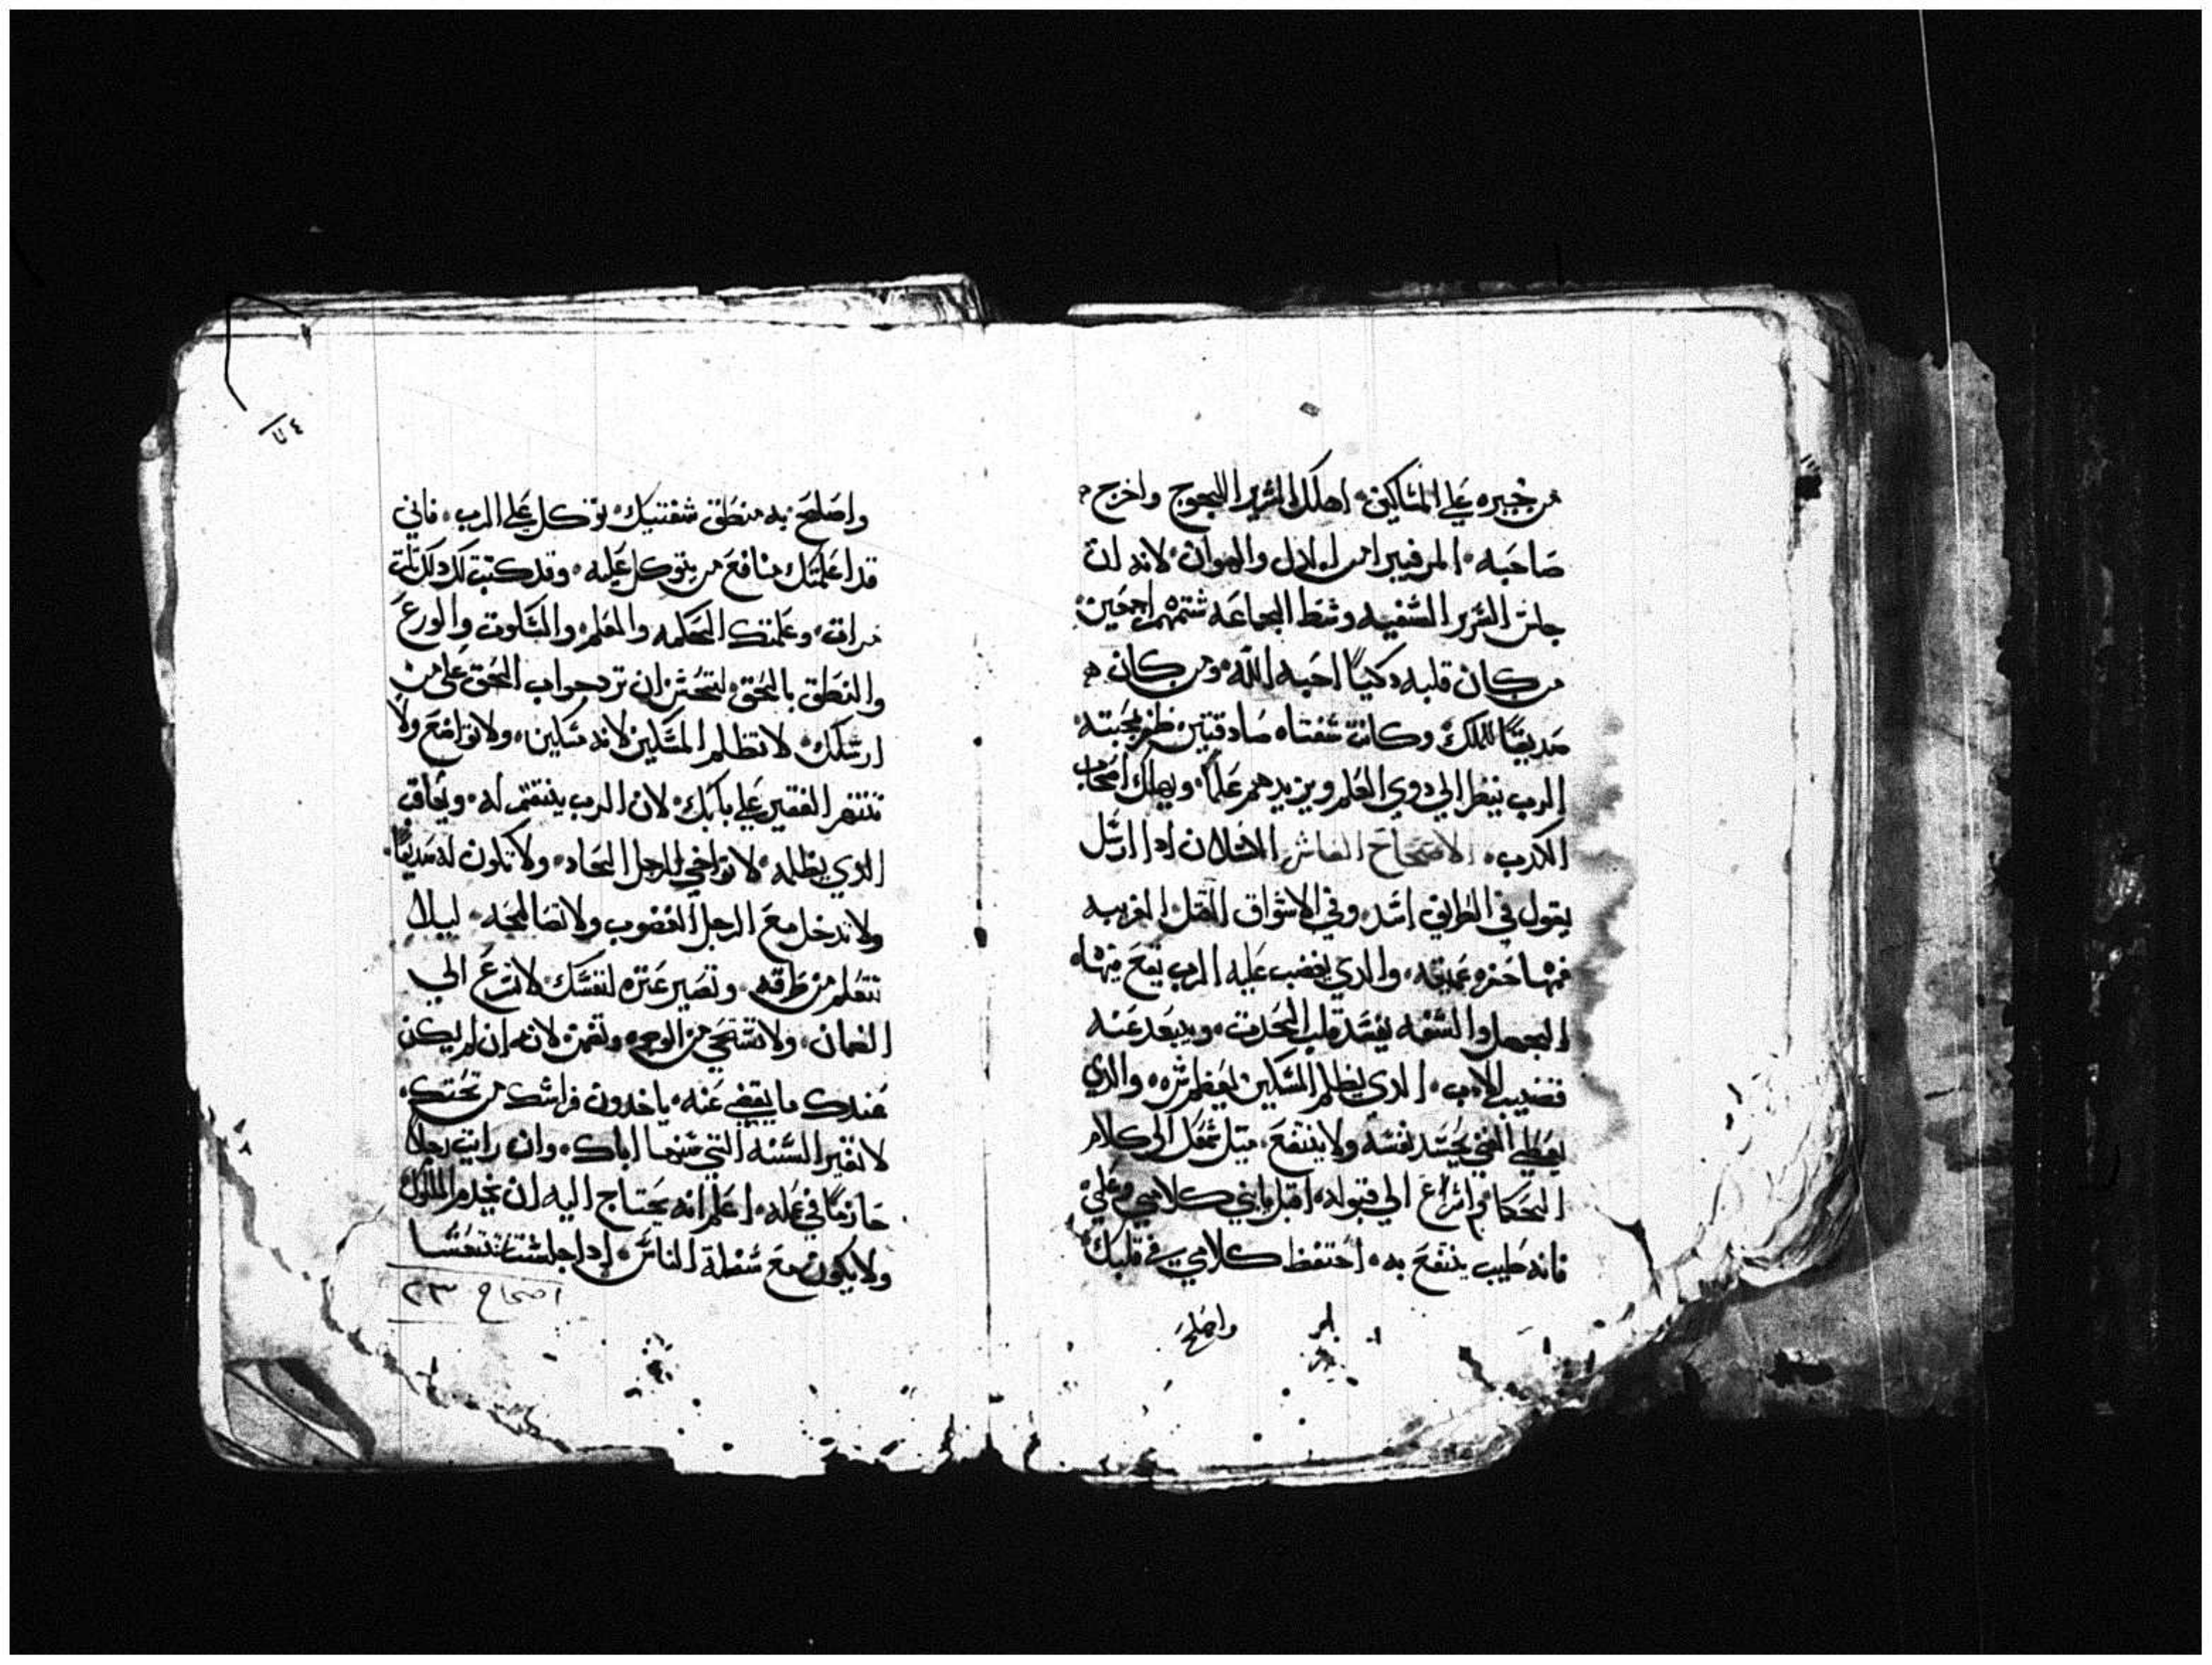 من خبزه علي المساكين، اهلك الشرير اللجوج واخرج
صاحبه، المرفيبر امر الدل والهوان، لانه ان
جلس الشرير السفيه وسط الجماعه شتمهم اجمعين،
من كان قلبه دكيًا احبه الله، ومن كان
صديقًا للملك وكانت شفتاه صادقتين ظفر بمحبته
الرب ينظر الي دوي العلم ويزيدهم علمًا، ويهلك اصحاب
الكدب، الاصحاح العاشر الكسلان ادا ارسل
يقول في الطريق اسد، وفي الاسواق القتل، الغريبه
فمها حفره عميقه، والدي يغضب عليه الرب يقع فيها،
الجهل والسفه يفسد قلب الحدث، ويبعد عنه
قضيب الادب، الدي يظلم المسكين يعظم شره، والدي
يعطي الغني يجسد نفسه ولا ينتفع، ميل سمعك الي كلام
الحكما واسرع الي قبوله، اقبل يابني كلامي وعلمي
فانه طيب ينتفع به، احتفظ كلامي في قلبك
واصلح
واصلح به منطق شفتيك، توكل علي الرب، فاني
قد اعلمتك منافع من يتوكل عليه، وقد كتبت لك دلك تلت
مرات، وعلمتك الحكمه والعلم، والسكوت والورع
والنطق بالحق، لتحسن ان ترد جواب الحق علي من
ارسلك، لا تظلم المسكين لانه مسكين، ولا تواضع ولا
تنتهر الفقير علي بابك، لان الرب ينتقم له، ويعاقب
الدي يظلمه، لا تواخي الرجل الحاد، ولا تكون له صديقًا،
ولا تدخل مع الرجل الغضوب ولا تصالحه، ليلا
تتعلم من طرقه، وتصير عتره لنفسك، لا تسرع الي
الضمان، ولا تستحي من الوجوه وتضمن، لانه ان لم يكن
عندك ما يقضي عنه، ياخدون فراشك من تحتك،
لا تغير السنه التي سنها اباك، وان رايت رجلًا
حازمًا في عمله، اعلم انه يحتاج اليه ان يخدم الملوك
ولا يكون مع سفلة الناس، ادا جلست تتعشا
اصحاح ٢٣